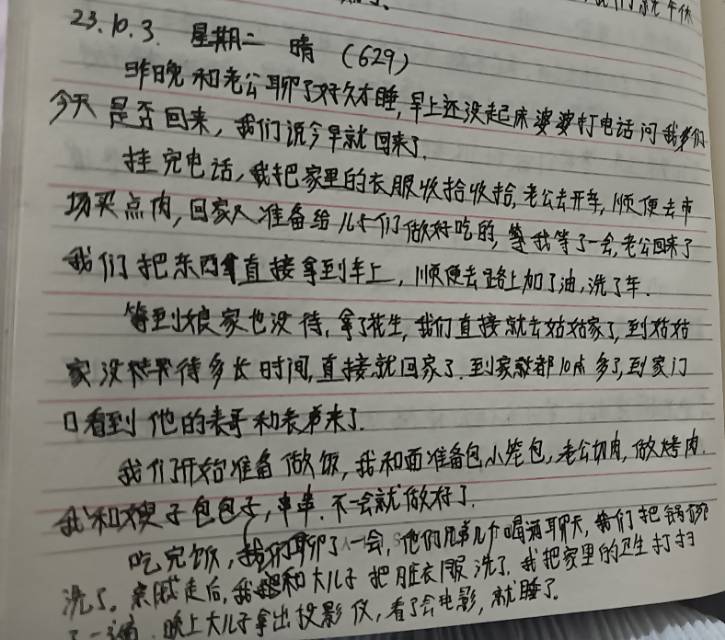 我们就午休
23.10.3. 星期二 晴 (629)
昨晚和老公聊了好久才睡,早上还没起床婆婆打电话问我们
今天是否回来,我们说今早就回来了.
挂完电话,我把家里的衣服收拾收拾,老公去开车,顺便去市
场买点肉,回家准备给儿子们做好吃的,等我等了一会,老公回来了
我们把东西直接拿到车上,顺便去路上加了油,洗了车.
等到娘家也没待,拿了花生,我们直接就去姑姑家了,到姑姑
家没待多长时间,直接就回家了.到家都10点多了,到家门
口看到他的表哥和表弟来了.
我们开始准备做饭,我和面准备包小笼包,老公切肉,做烤肉.
我和嫂子包包子,串串.不一会就做好了.
吃完饭,我们聊了一会,他们兄弟几个喝酒聊天,我们把锅碗
洗了。亲戚走后,我和大儿子把脏衣服洗了.我把家里的卫生打扫
了一遍.晚上大儿子拿出投影仪,看了会电影,就睡了。